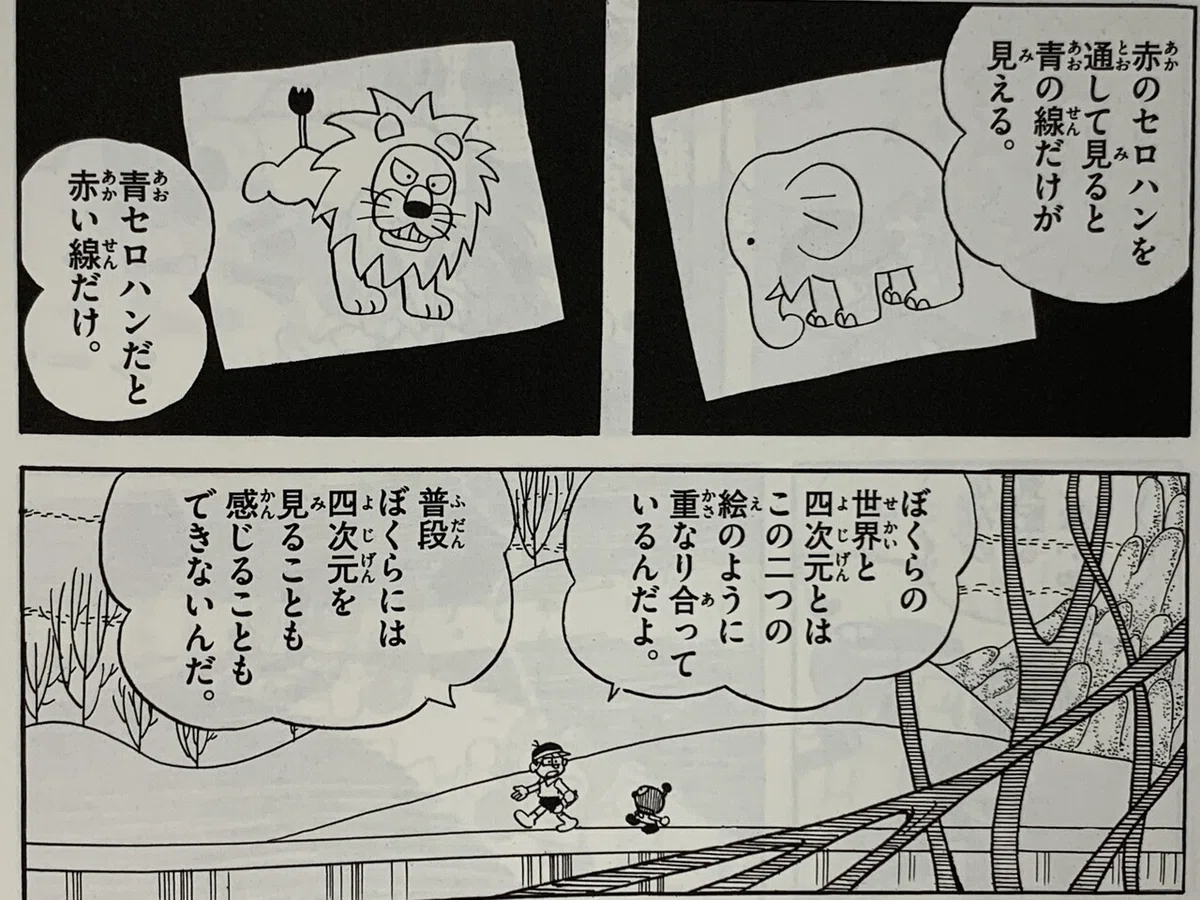 赤のセロハンを
通して見ると
青の線だけが
見える。
青セロハンだと
赤い線だけ。
ぼくらの
世界と
四次元とは
この二つの
絵のように
重なり合って
いるんだよ。
普段
ぼくらには
四次元を
見ることも
感じることも
できないんだ。